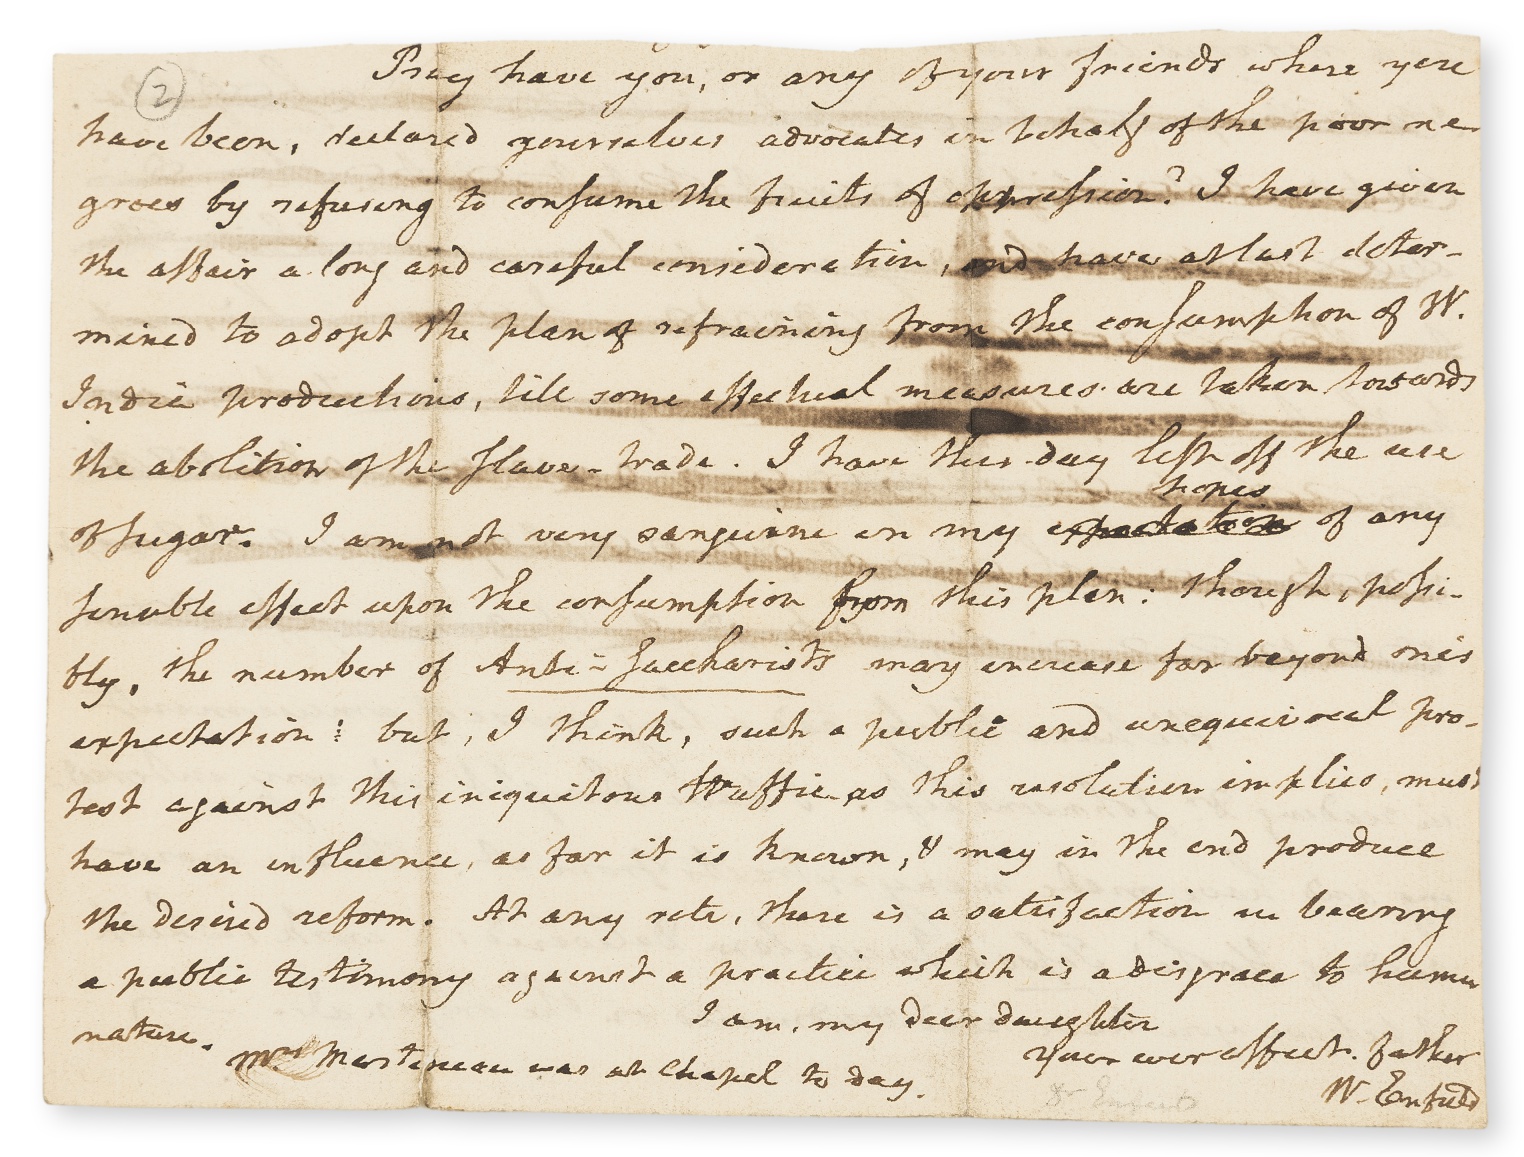 2
Pray have you, or any of your friends where you
have been, declared yourselves advocates in behalf of the poor ne-
groes by refusing to consume the fruits of oppression? I have given
the affair a long and careful consideration, and have at last deter-
mined to adopt the plan of refraining from the consumption of W.
Indie productions, till some effectual measures are taken towards
the abolition of the slave-trade. I have this day left off the use
hopes
of sugar. I am not very sanguine in my expectation of any
sensible effect upon the consumption from this plan: though, possi-
bly, the number of Anti-Saccharists may increase far beyond ones
expectation: but, I think, such a public and unequivocal pro-
test against this iniquitous traffic as this resolution implies, must
have an influence, as far it is known, & may in the end produce
the desired reform. At any rate, there is a satisfaction in bearing
a public testimony against a practice which is a disgrace to human
nature.
I am, my dear daughter
your ever affect. father
W. Enfield
Mrs Martineau was at Chapel to day.
Dr Enfield